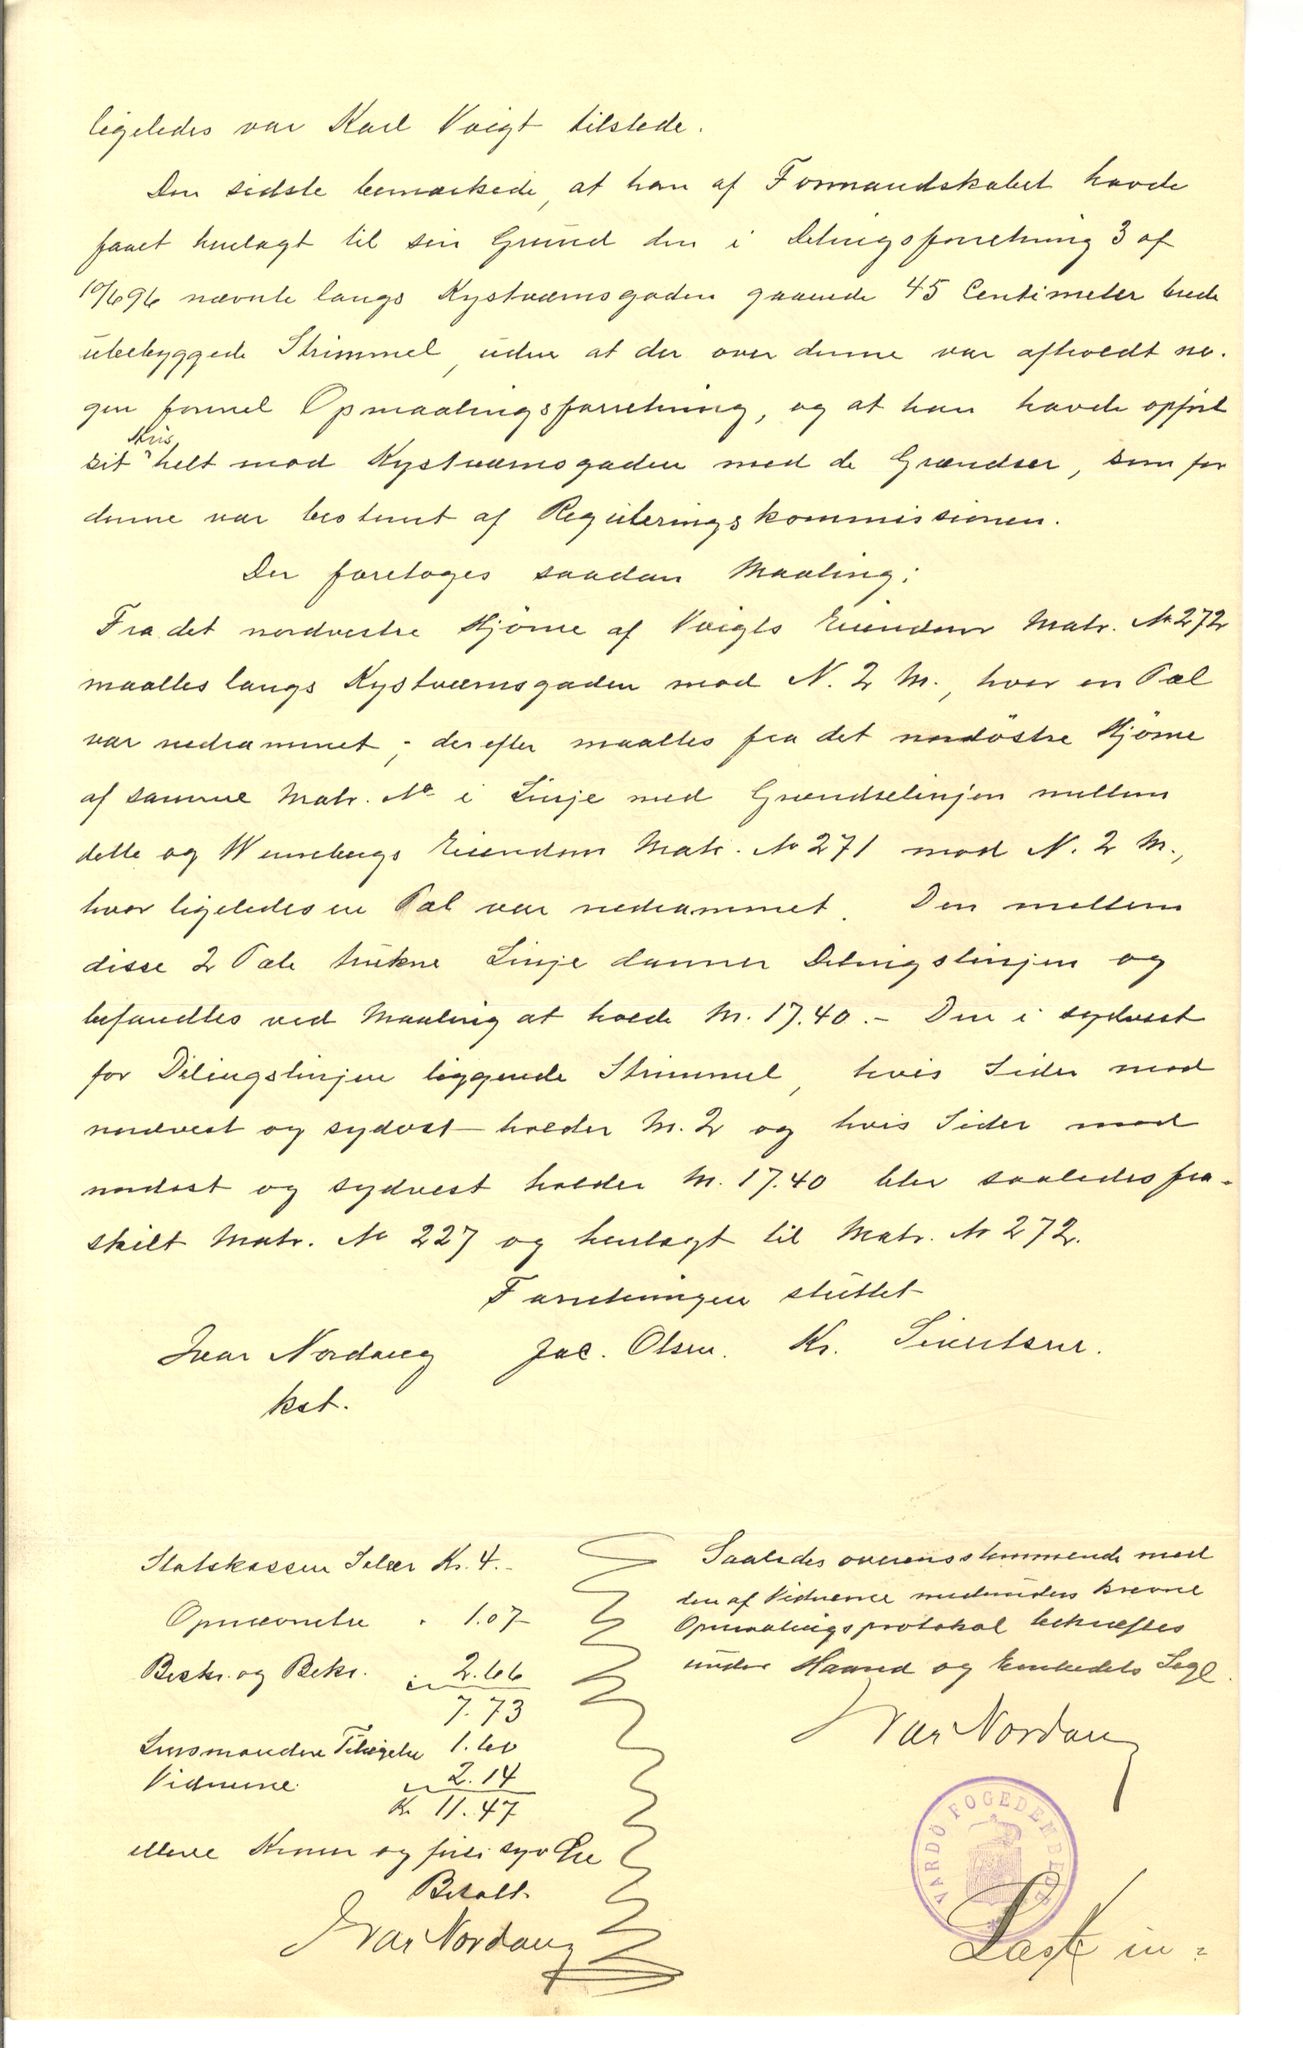 ligeledes var Karl Voigt tilstede.
Den sidste bemærkede, at han af Formandskabet havde
faaet henlagt til sin Grund den i Delingsforretning 3 af
10/6 96 nævnte langs Kystværnsgaden gaaende 45 Centimeter brede
ubebyggede Strimmel, uden at der over denne var afholdt no-
gen formel Opmaalingsforretning, og at han havde opført
sit Hus helt mod Kystværnsgaden med de Grændser, som for
denne var bestemt af Reguleringskommissionen.
Der foretoges saadan Maaling:
Fra det nordvestre Hjørne af Voigts Eiendom Matr. No 272
maaltes langs Kystværnsgaden mod N. 2 M., hvor en Pæl
var nedrammet; derefter maaltes fra det nordöstre Hjörne
af samme Matr. No i Linje med Grændselinjen mellem
dette og Wennebergs Eiendom Matr. No 271 mod N. 2 M.,
hvor ligeledes en Pæl var nedrammet. Den mellem
disse 2 Pæle trukne Linje danner Delingslinjen og
befandtes ved Maaling at holde M. 17.40. - Den i sydvest
for Delingslinjen liggende Strimmel, hvis Sider mod
nordvest og sydost holder M. 2 og hvis Sider mod
nordost og sydvest holder M. 17.40 blev saaledes fra-
skilt Matr. No 227 og henlagt til Matr. No 272.
Forretningen sluttet
Ivar Nordang Jac. Olsen. Kr. Sivertsen.
kst.
Statskassen Salær Kr. 4.-
Opnævnelse " 1.07
Beskr. og Bekr. " 2.66
7.73
Lensmandens Tilsigelse 1.60
Vidnerne " 2.14
Kr 11.47
elleve Kroner og firti syv Øre
Betalt
Ivar Nordang
Saaledes overensstemmende med
den af Vidnerne medunderskrevne
Opmaalingsprotokol bekræftes
under Haand og Embedets Segl.
Ivar Nordang
VARDÖ FOGEDEMBEDE
Læst in-